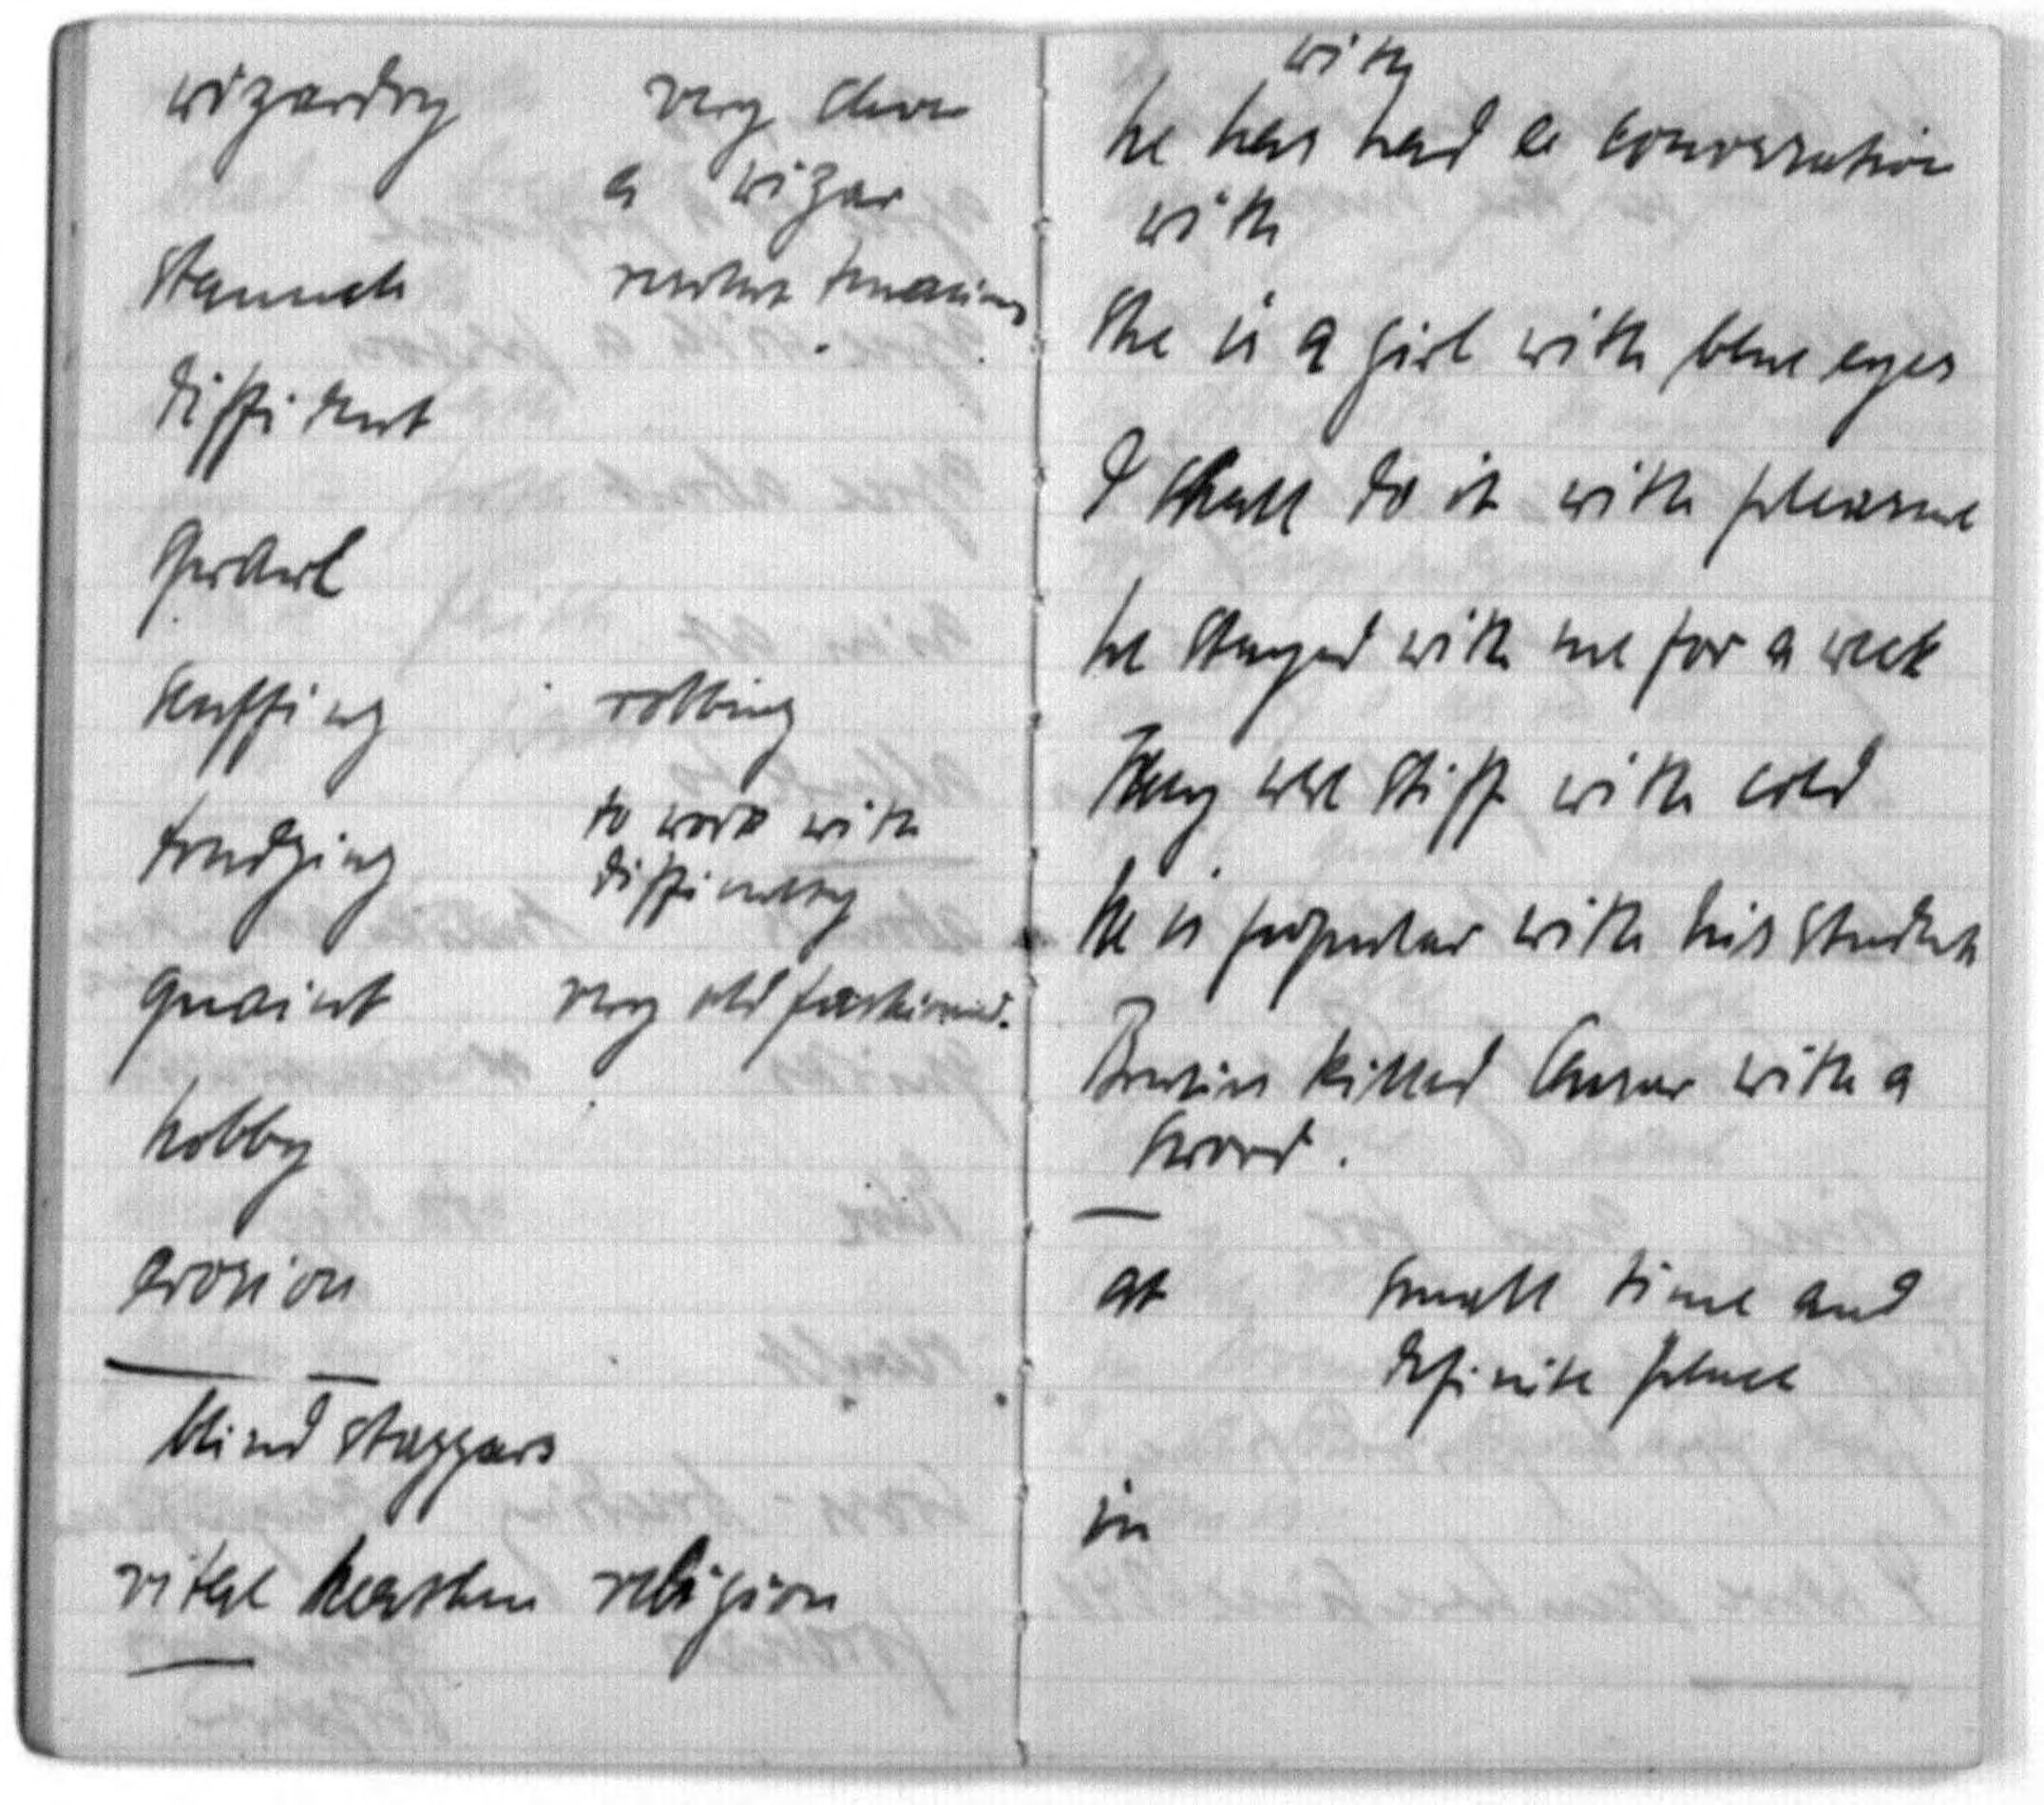 wizardry very clever
a wizar
staunch resolute tenacious
diffident
scuffing robbing
trudging to work with
difficulty
quaint very old fashioned.
hobby
erosion
blind staggers
vital heathen religion
with
he has had a conversation
with
She is a girl with blue eyes
I shall do it with pleasure
he stayed with me for a week
They were stiff with cold
He is popular with his students
Brutus killed Caesar with a
sword.
at small time and
definite place
in